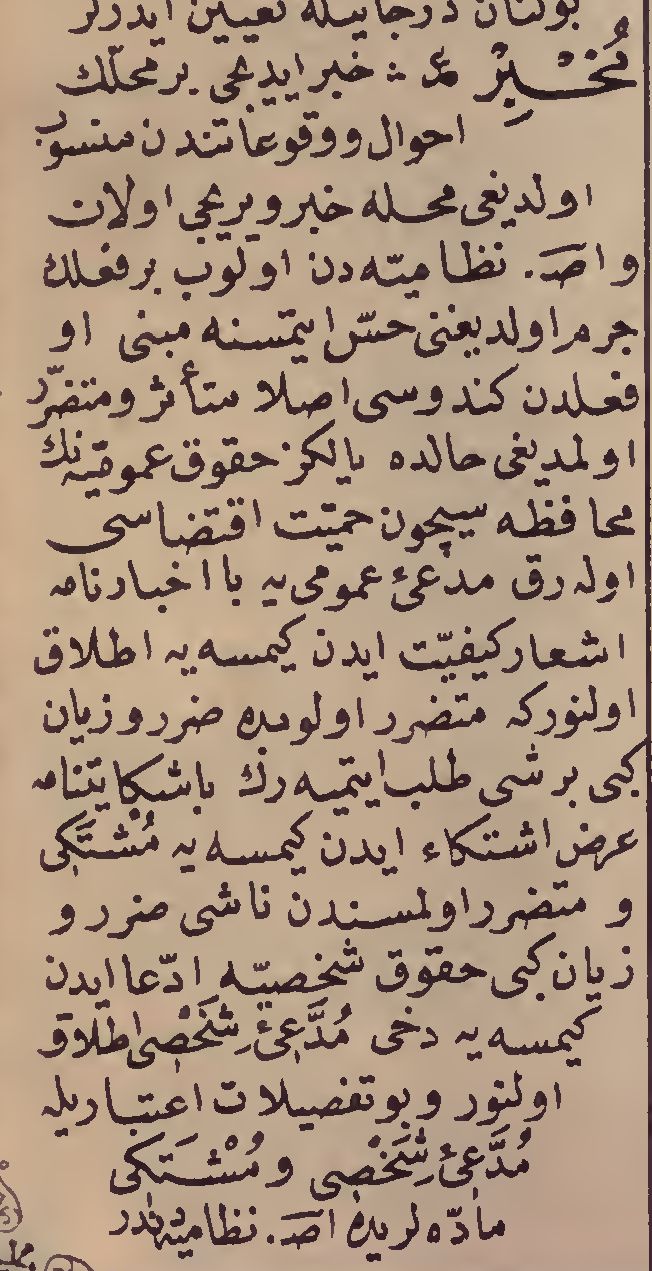 بولنان درجاتیله تعیین ایدرلر
مُخْبِرْ ع : خبر ایدیجی بر محلّك
احوال ووقوعاتندن منسوب
اولدیغی محله خبر ویریجی اولان
واصـ. نظامیّه دن اولوب بر فعلك
جرم اولدیغنی حسّ ایتمسنه مبنی او
فعلدن کندوسی اصلا متأثر ومتضرّر
اولمدیغی حالده یالکز حقوق عمومیّه نك
محافظه سیچون حمیّت اقتضاسی
اوله رق مدعئ عمومی یه با اخبارنامه
اشعار کیفیّت ایدن کیمسه یه اطلاق
اولنورکه متضرر اولوبده ضرر و زیان
کبی بر شی طلب ایتمیه رك باشکایتنامه
عرض اشتکاء ایدن کیمسه یه مُشْتَکِی
و متضرر اولمسندن ناشی ضرر و
زیان کبی حقوق شخصیّه ادّعا ایدن
کیمسه یه دخی مُدَّعِئِ شَخْصِی اطلاق
اولنور وبو تفصیلات اعتباریله
مُدَّعِئِ شَخْصِی ومُشْتَکِی
مادّه لریده اصـ. نظامیّه دندر